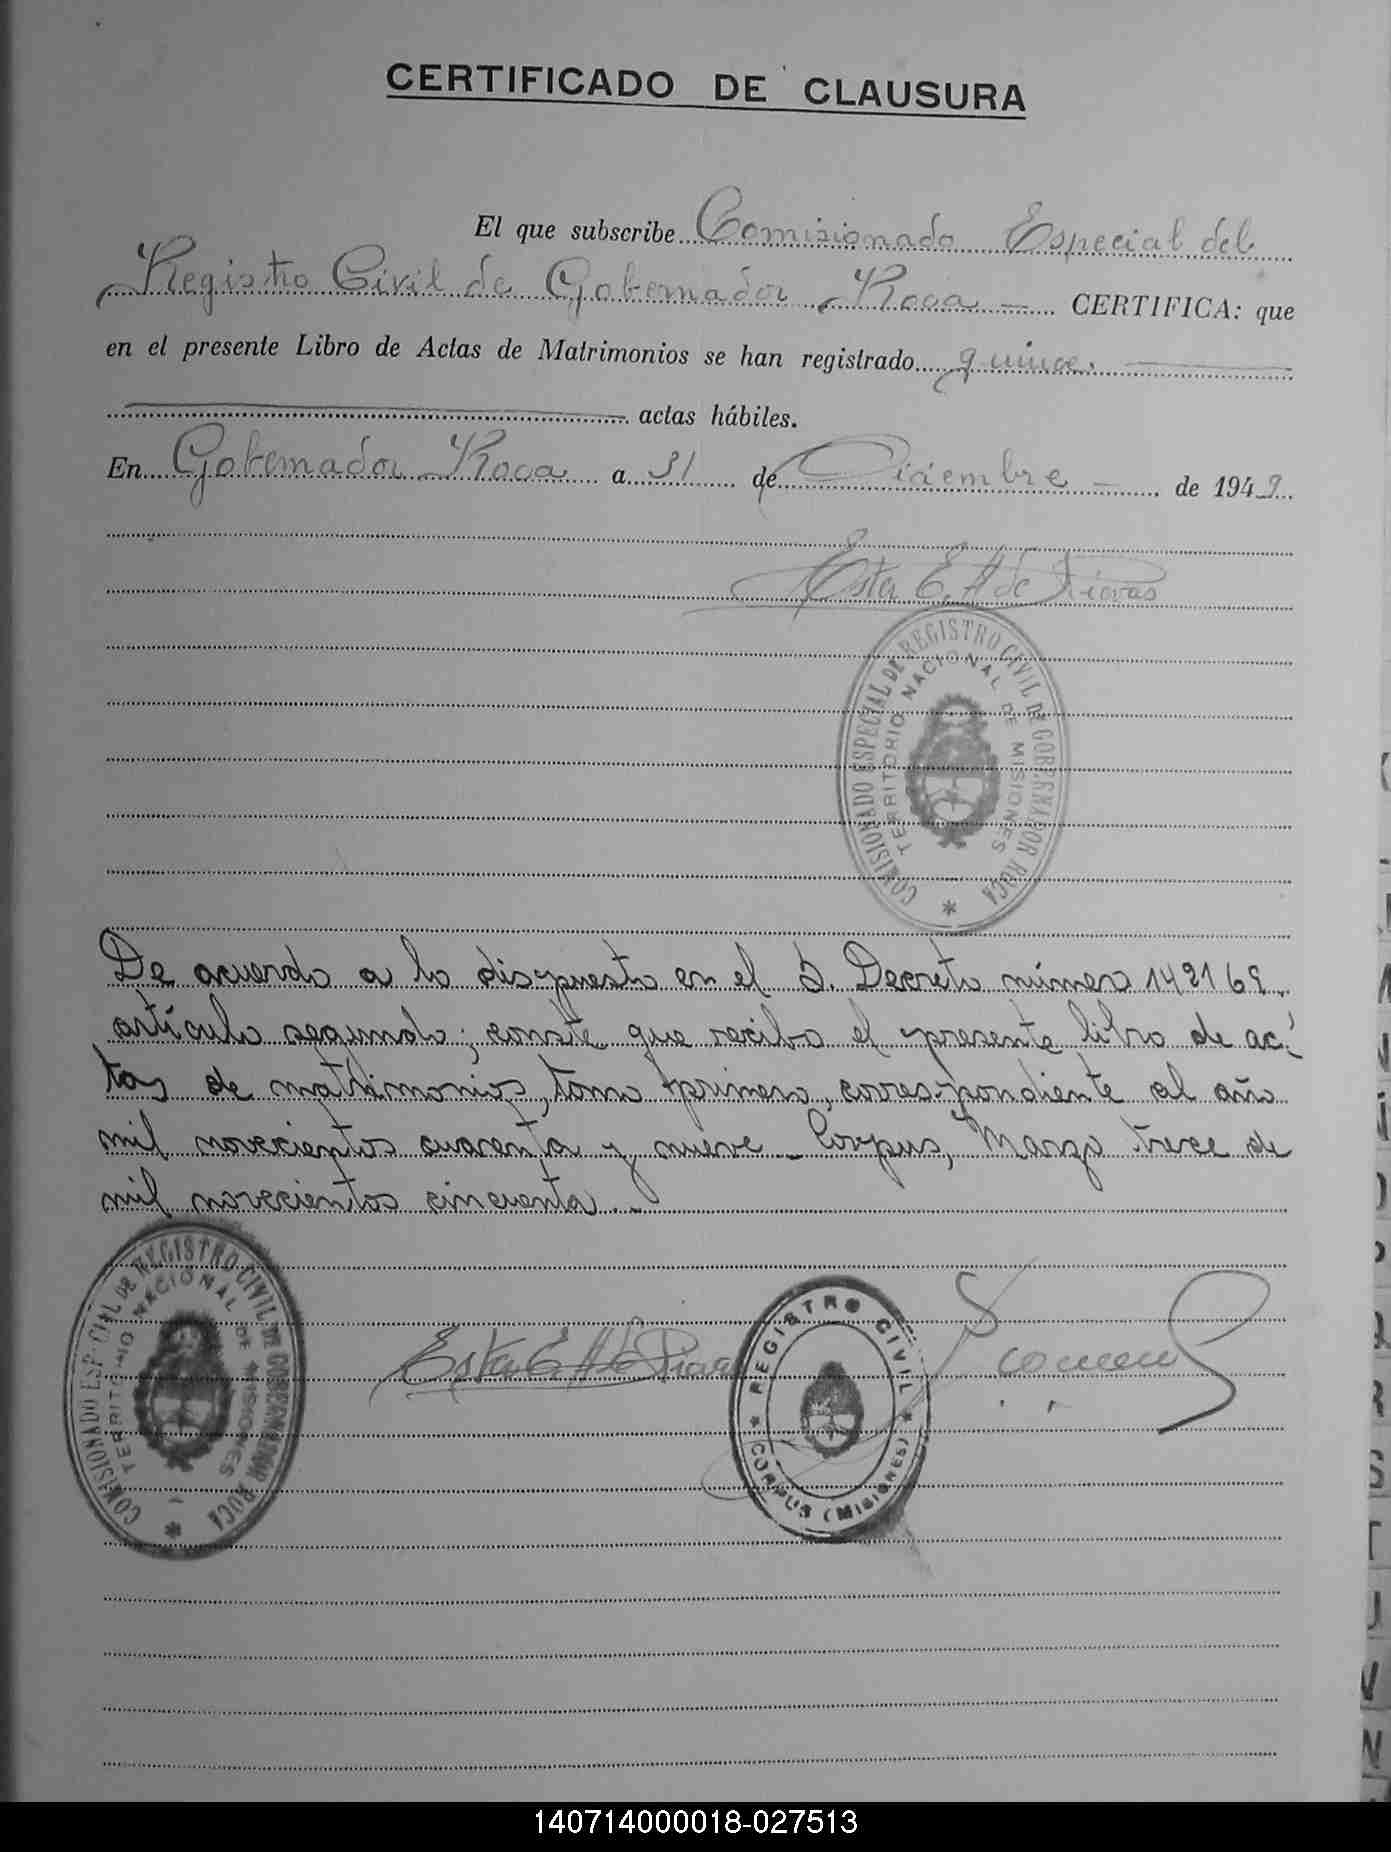 CERTIFICADO DE CLAUSURA
El que subscribe Comisionado Especial del
Registro Civil de Gobernador Roca — CERTIFICA: que
en el presente Libro de Actas de Matrimonios se han registrado quince.
actas hábiles.
En Gobernador Roca a 31 de Diciembre — de 1949.
Esta E. A de
COMISIONADO ESPECIAL DE REGISTRO CIVIL DE GOBERNADOR ROCA
TERRITORIO NACIONAL DE MISIONES
De acuerdo a lo dispuesto en el S. Decreto número 149169.
artículo segundo; conste que recibo el presente libro de ac-
tas de matrimonios, tomo primero, correspondiente al año
mil novecientos cuarenta y nueve - Corpus, Marzo trece de
mil novecientos cincuenta. -
COMISIONADO ESPECIAL DE REGISTRO CIVIL DE GOBERNADOR ROCA
TERRITORIO NACIONAL DE MISIONES
Esta E. A de
REGISTRO CIVIL
CORPUS (MISIONES)
140714000018-027513